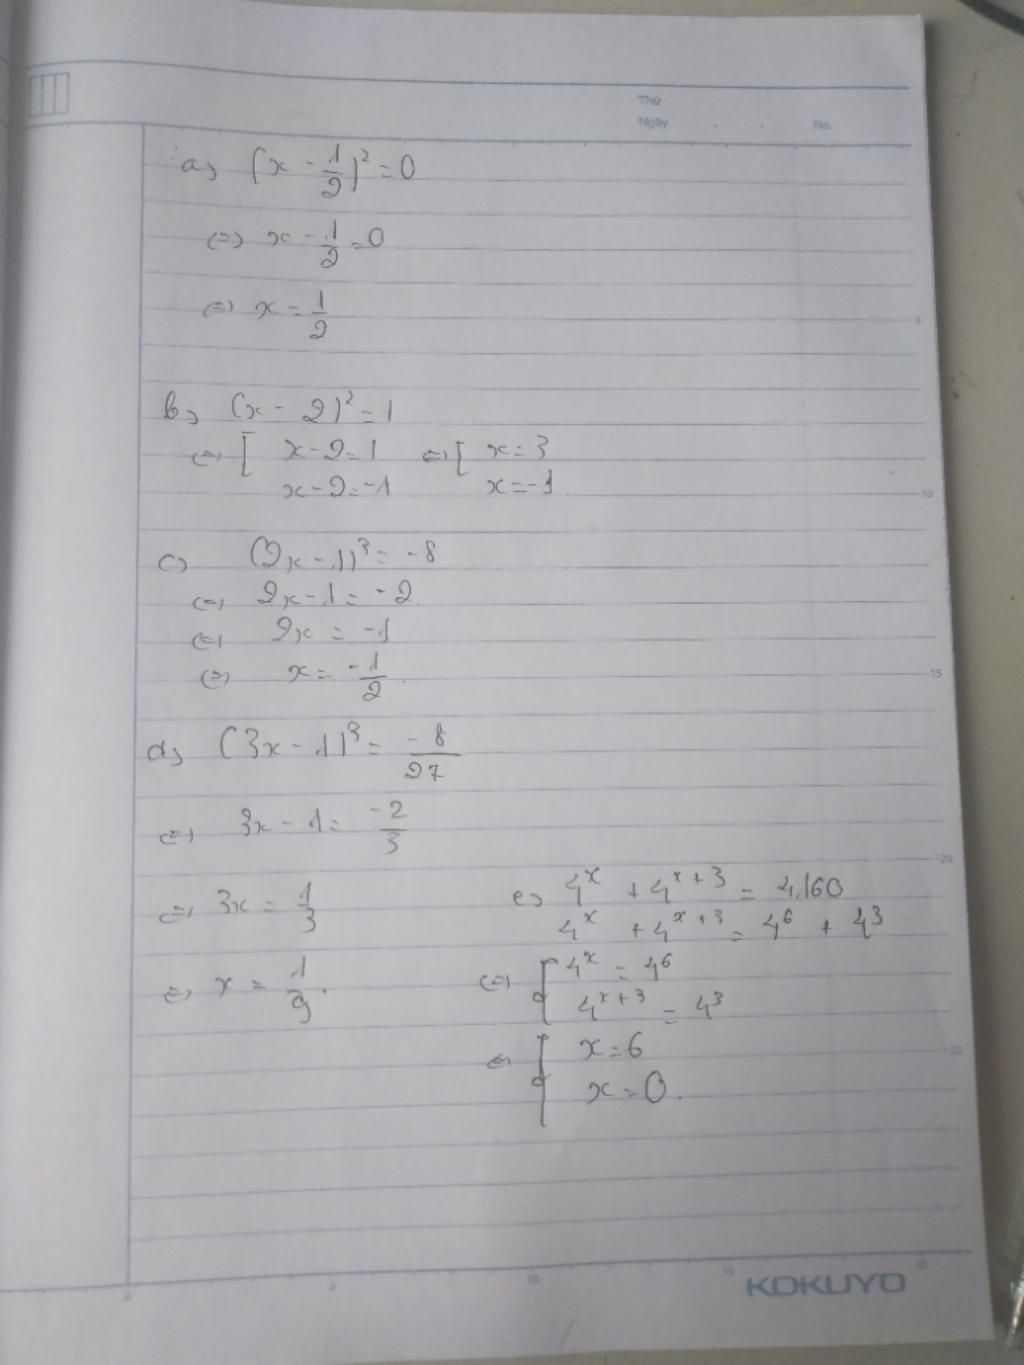 Thứ
Ngày . . No.
a) (x - 1/2)² = 0
⇔ x - 1/2 = 0
⇔ x = 1/2
5
b) (x - 2)² = 1
⇔ [ x - 2 = 1 ⇔ [ x = 3
x - 2 = -1 x = -1.
10
c) (2x - 1)³ = -8
⇔ 2x - 1 = -2.
⇔ 2x = -1
⇔ x = -1/2.
15
d) (3x - 1)³ = -8/27
⇔ 3x - 1 = -2/3
20
⇔ 3x = 1/3
⇔ x = 1/9.
e) 4^x + 4^(x+3) = 4160
4^x + 4^(x+3) = 4^6 + 4^3
⇔ { 4^x = 4^6
4^(x+3) = 4^3
⇔ { x = 6
x = 0.
25
5 10 15 20
KOKUYO